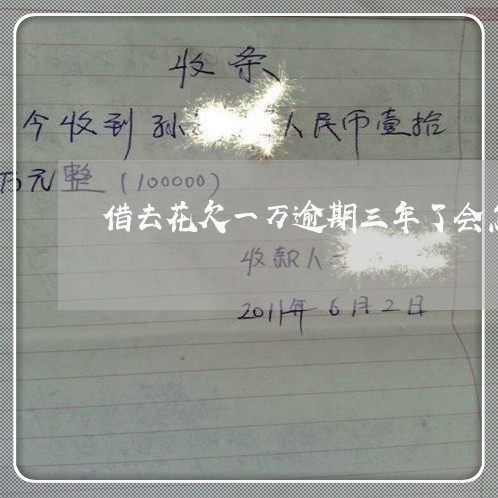 收条
今收到孙 人民币壹拾
万元整（100000）
借去花欠一万逾期三年了会
收款人
2011年6月2日